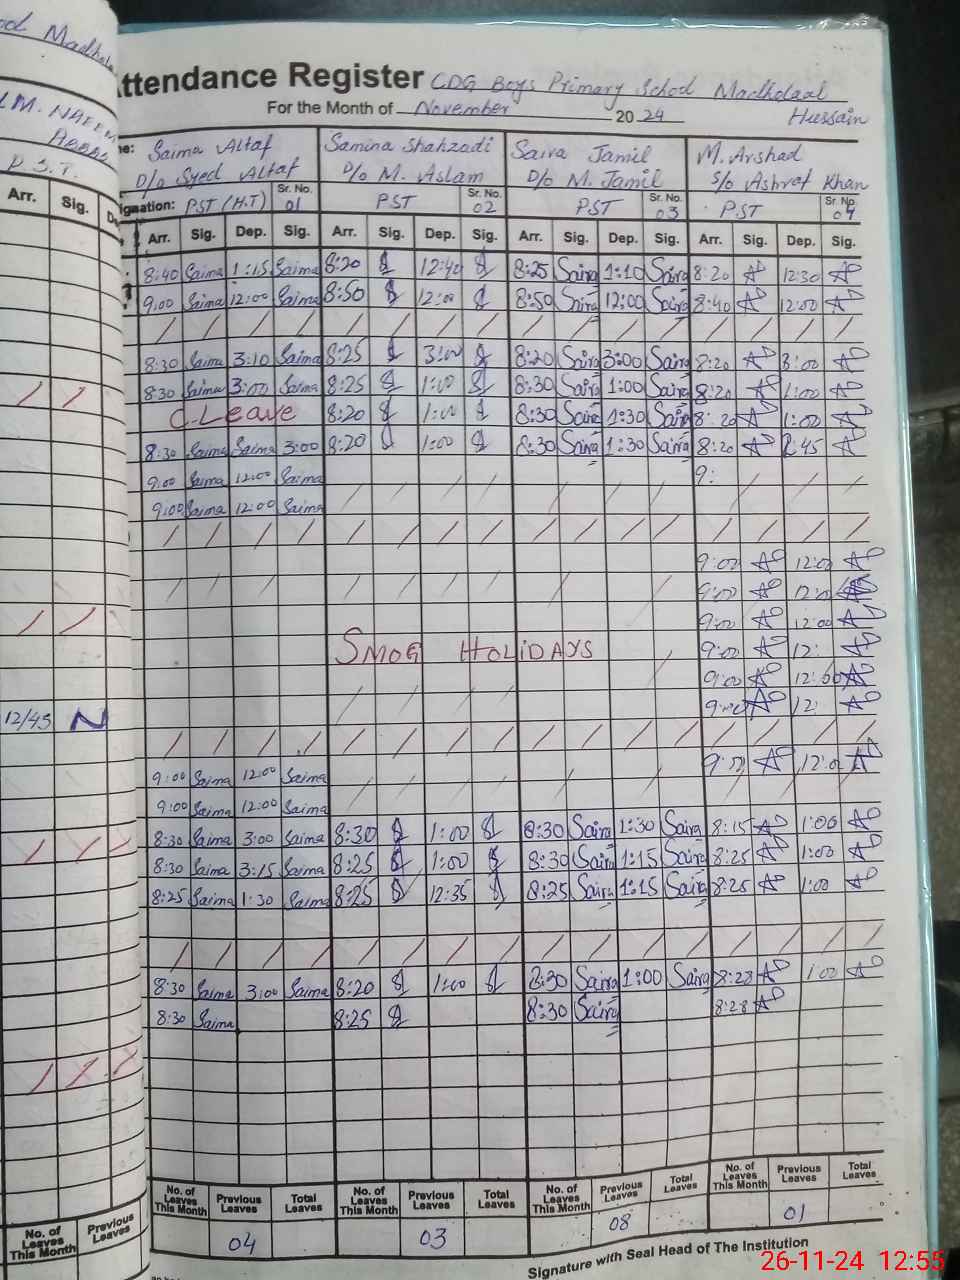 Attendance Register CDG Boys Primary School Madholaal
For the Month of November 2024 Hussain
Saima Altaf Samina Shahzadi Saira Jamil M. Arshad
D/o Syed Altaf D/o M. Aslam D/o M. Jamil S/o Ashraf Khan
PST (H.T) Sr. No. 01 PST Sr. No. 02 PST Sr. No. 03 PST Sr. No. 04
Arr. Sig. Dep. Sig. Arr. Sig. Dep. Sig. Arr. Sig. Dep. Sig. Arr. Sig. Dep. Sig.
8:40 Saima 1:15 Saima 8:20 12:40 8:25 Saira 1:10 Saira 8:20 12:30
9:00 Saima 12:00 Saima 8:50 12:00 8:50 Saira 12:00 Saira 8:40 12:00
8:30 Saima 3:10 Saima 8:25 3:00 8:20 Saira 3:00 Saira 8:20 3:00
8:30 Saima 3:00 Saima 8:25 1:00 8:30 Saira 1:00 Saira 8:20 1:00
C-Leave 8:20 1:00 8:30 Saira 1:30 Saira 8:20 1:00
8:30 Saima Saima 3:00 8:20 1:00 8:30 Saira 1:30 Saira 8:20
9:00 Saima 12:00 Saima 9:
9:00 Saima 12:00 Saima
9:00 12:00
9:00
9:00 12:00
SMOG HOLIDAYS 9:00 12:
9:00 12:00
9:00 12:
9:00 Saima 12:00 Saima 9:00 12:0
9:00 Saima 12:00 Saima
8:30 Saima 3:00 Saima 8:30 1:00 8:30 Saira 1:30 Saira 8:15 1:00
8:30 Saima 3:15 Saima 8:25 1:00 8:30 Saira 1:15 Saira 8:25 1:00
8:25 Saima 1:30 Saima 8:25 12:35 8:25 Saira 1:15 Saira 8:25 1:00
8:30 Saima 3:00 Saima 8:20 1:00 8:30 Saira 1:00 Saira 8:28 1:00
8:30 Saima 8:25 8:30 Saira 8:28
No. of Leaves This Month Previous Leaves Total Leaves No. of Leaves This Month Previous Leaves Total Leaves No. of Leaves This Month Previous Leaves Total Leaves No. of Leaves This Month Previous Leaves Total Leaves
04 03 08 01
Signature with Seal Head of The Institution
M. NAEEM
ABBAS
P.S.T.
Arr. Sig.
12/45 N
No. of Leaves This Month Previous Leaves
26-11-24 12:55